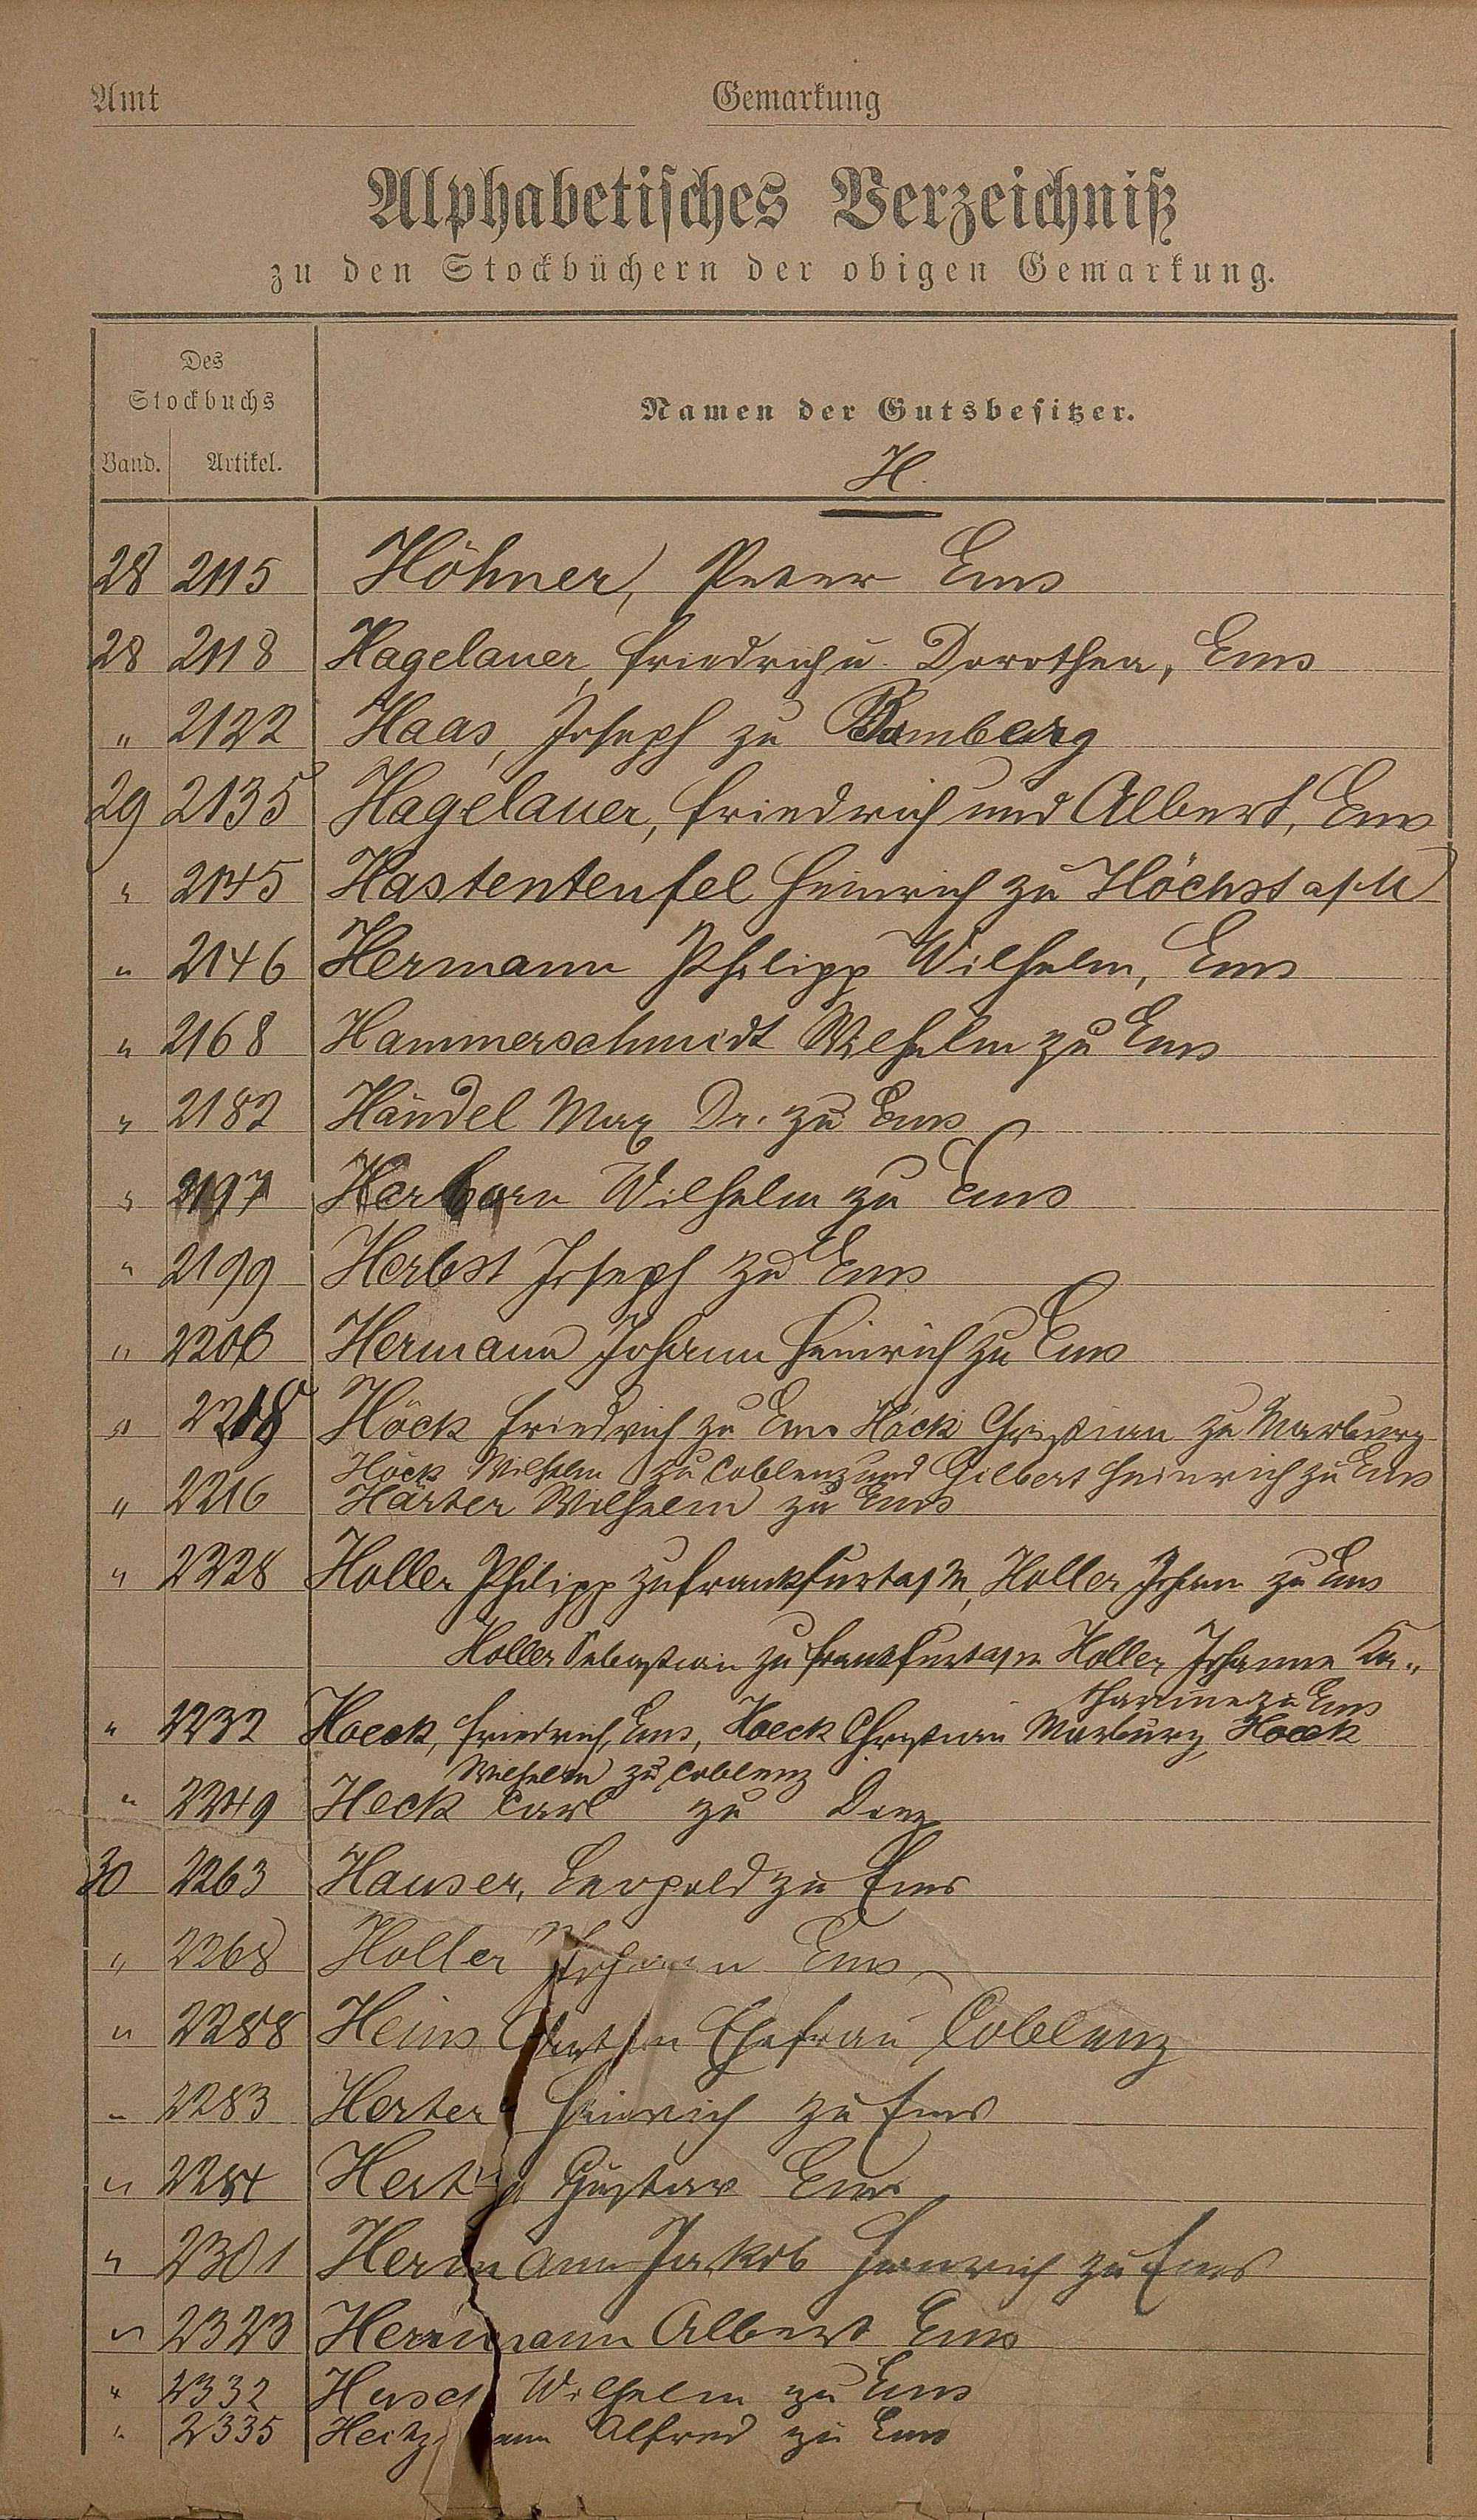 Amt Gemarkung
Alphabetisches Verzeichniß
zu den Stockbüchern der obigen Gemarkung.
Des
Stockbuchs
Namen der Gutsbesitzer.
Band. Artikel.
H.
28 2115 Höhner, Peter Ems
28 2118 Hagelauer, Friedrich u. Dorothea, Ems
" 2122 Haas, Joseph zu Bamberg
29 2135 Hagelauer, Friedrich und Albert, Ems
" 2145 Hastenteufel Heinrich zu Höchst a/M
" 2146 Hermann Philipp Wilhelm, Ems
" 2168 Hammerschmidt Wilhelm zu Ems
" 2182 Händel Max Dr. zu Ems
" 2197 Herborn Wilhelm zu Ems
" 2199 Herbst Joseph zu Ems
" 2206 Hermann Johann Heinrich zu Ems
" 2218 Höck Friedrich zu Ems Höck Christian zu Marburg
Höck Wilhelm zu Coblenz und Gilbert Heinrich zu Ems
" 2216 Härter Wilhelm zu Ems
" 2228 Holler Philipp zu Frankfurt a/M, Holler Johann zu Ems
Holler Sebastian zu Frankfurt a/M Holler Johanna Ka"
tharina zu Ems
" 2232 Hoeck, Friedrich, Ems, Hoeck Christian Marburg, Hoeck
Wilhelm zu Coblenz
" 2249 Heck Carl zu Diez
30 2263 Hauser, Leopold zu Ems
" 2268 Holler Johann Ems
" 2288 Heins Ehefrau Coblenz
" 2283 Herter Heinrich zu Ems
" 2284 Gustav Ems
" 2301 Hermann Jakob Heinrich zu Ems
" 2323 Herrmann Albert Ems
" 2332 Wilhelm zu Ems
" 2335 Alfred zu Ems